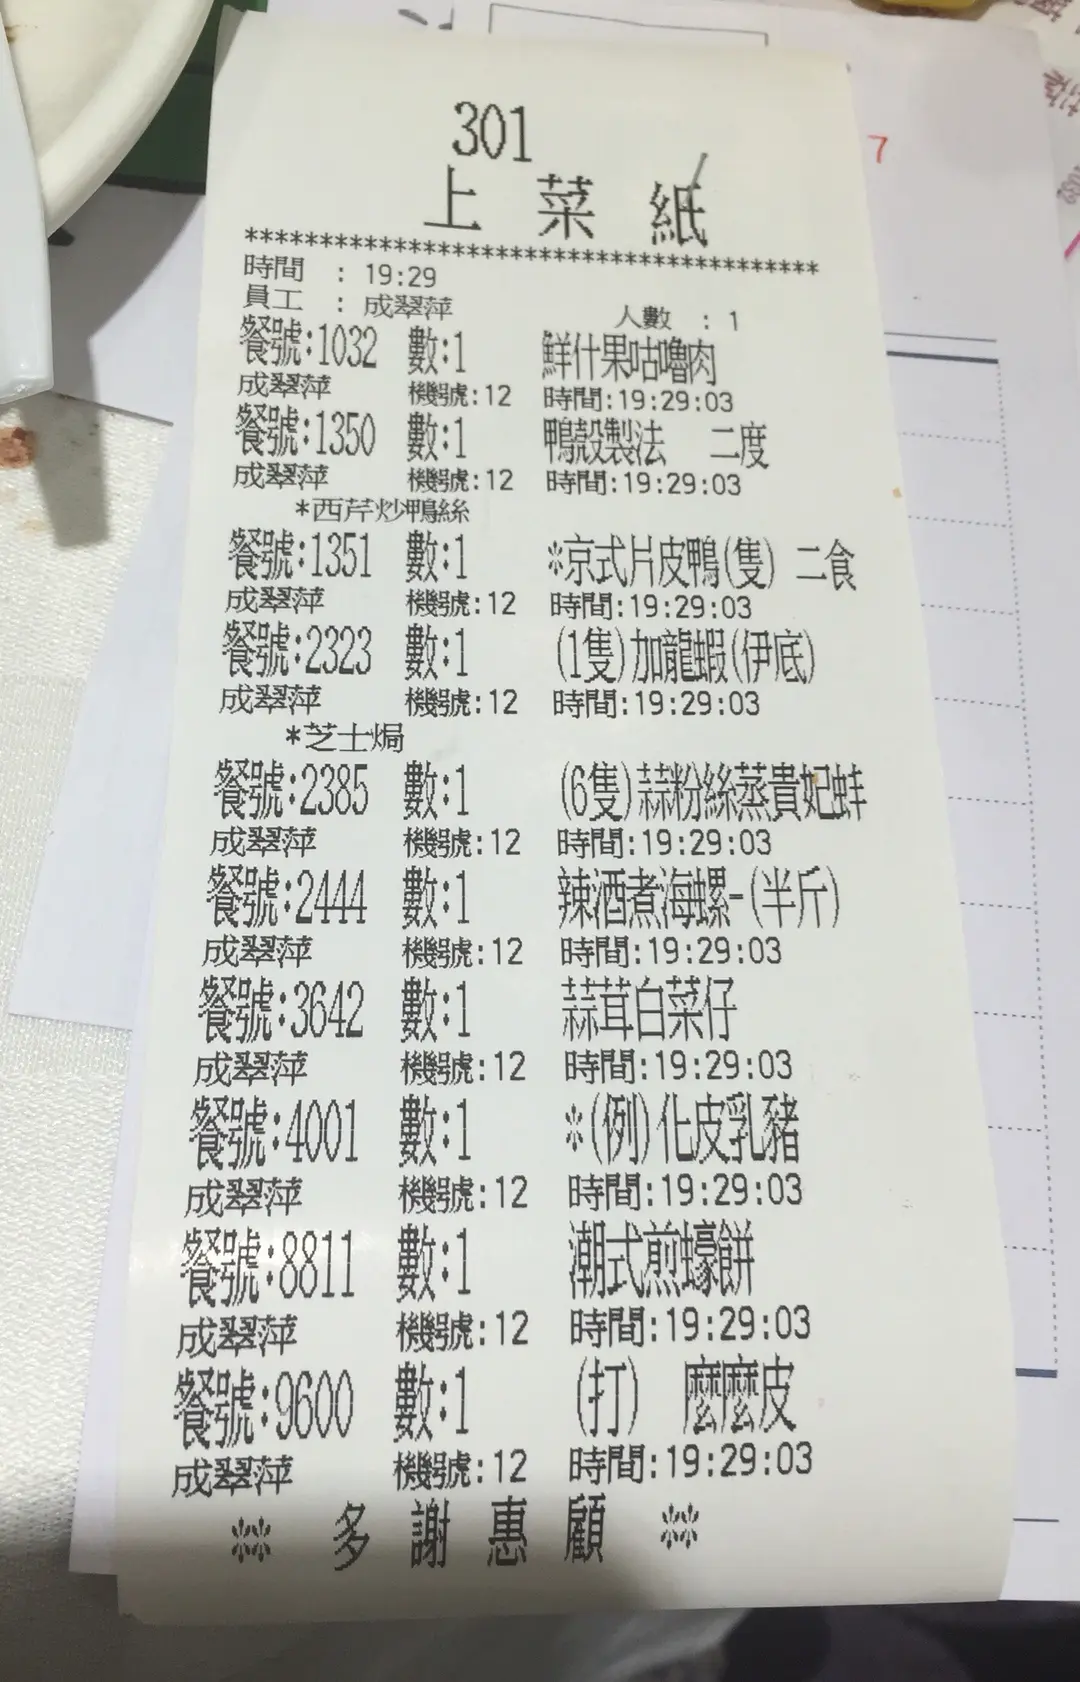 301
上菜紙
***********************************************
時間 : 19:29
員工 : 成翠萍 人數 : 1
餐號:1032 數:1 鮮什果咕嚕肉
成翠萍 機號:12 時間:19:29:03
餐號:1350 數:1 鴨殼製法 二度
成翠萍 機號:12 時間:19:29:03
*西芹炒鴨絲
餐號:1351 數:1 *京式片皮鴨(隻) 二食
成翠萍 機號:12 時間:19:29:03
餐號:2323 數:1 (1隻)加龍蝦(伊底)
成翠萍 機號:12 時間:19:29:03
*芝士焗
餐號:2385 數:1 (6隻)蒜粉絲蒸貴妃蚌
成翠萍 機號:12 時間:19:29:03
餐號:2444 數:1 辣酒煮海螺-(半斤)
成翠萍 機號:12 時間:19:29:03
餐號:3642 數:1 蒜茸白菜仔
成翠萍 機號:12 時間:19:29:03
餐號:4001 數:1 *(例)化皮乳豬
成翠萍 機號:12 時間:19:29:03
餐號:8811 數:1 潮式煎蠔餅
成翠萍 機號:12 時間:19:29:03
餐號:9600 數:1 (打) 麼麼皮
成翠萍 機號:12 時間:19:29:03
** 多謝惠顧 **
7